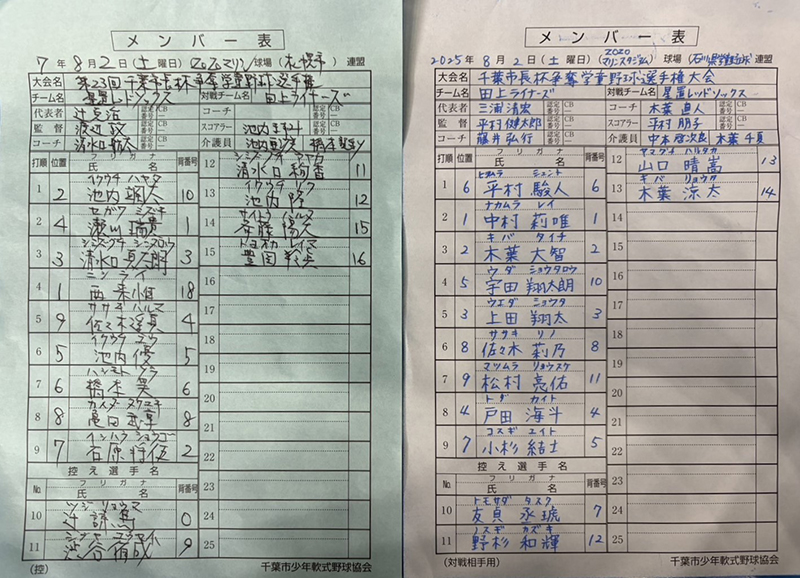 メンバー表
7年8月2日(土曜日)ZOZOマリン球場(札幌市)連盟
大会名
チーム名 星置レッドソックス 対戦チーム名 田上ライナーズ
代表者 認定番号 CB コーチ 認定番号 CB
監督 渡辺 スコアラー 池内
コーチ 清水口 介護員
打順 位置 フリガナ 氏名 背番号
1 2 イケウチ ハヤタ 池内 颯太 10
2 4 セガワ ミズキ 瀬川 瑞貴 1
3 3 シミズグチ シンタロウ 清水口 真太朗 3
4 1 ニシ ライ 西 18
5 9 ササキ ハルマ 佐々木 4
6 5 イケウチ ユウ 池内 優 5
7 6 ハシモト ショウ 橋本 笑 6
8 8 カメダ 亀田 8
9 7 イシハラ ショウゴ 石原 2
控え選手名
No. フリガナ 氏名 背番号
10 ツジ リョウマ 辻 諒馬 0
11 渋谷 9
12 清水口 絢香 11
13 イケウチ リク 池内 陸 12
14 サイトウ ハルヒサ 斉藤 陽久 15
15 豊岡 16
16
17
18
19
20
21
22
23
24
25
(控) 千葉市少年軟式野球協会
メンバー表
2025年8月2日(土曜日)ZOZOマリンスタジアム球場(石川県学童野球)連盟
大会名 千葉市長杯争奪学童野球選手権大会
チーム名 田上ライナーズ 対戦チーム名 星置レッドソックス
代表者 三浦 清宏 認定番号 CB コーチ 木葉 直人 認定番号 CB
監督 平村 健太郎 スコアラー 平村 朋子
コーチ 藤井 弘行 介護員 中本 啓次郎 木葉 千夏
打順 位置 フリガナ 氏名 背番号
1 6 ヒラムラ シュント 平村 駿人 6
2 1 ナカムラ レイ 中村 莉唯 1
3 2 キバ タイチ 木葉 大智 2
4 5 ウダ ショウタロウ 宇田 翔太朗 10
5 3 ウエダ ショウタ 上田 翔太 3
6 8 ササキ リノ 佐々木 莉乃 8
7 9 マツムラ リョウスケ 松村 亮佑 11
8 4 トダ カイト 戸田 海斗 4
9 7 コスギ エイト 小杉 結士 5
控え選手名
No. フリガナ 氏名 背番号
10 トモサダ タスク 友貞 丞琥 7
11 ノスギ カズキ 野杉 和輝 12
12 ヤマグチ ハルタカ 山口 晴嵩 13
13 キバ リョウタ 木葉 涼太 14
14
15
16
17
18
19
20
21
22
23
24
25
(対戦相手用) 千葉市少年軟式野球協会